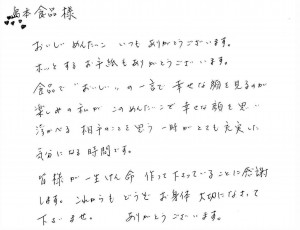 島本食品様
おいしいめんたいこ いつもありがとうございます。
ホッとするお手紙もありがとうございます。
食品で"おいしい"の一言で幸せな顔を見るのが
楽しみの私が このめんたいこで幸せな顔を思い
浮かべる 相手のことを思う一時がとても充実した
気分になる時間です。
皆様が一生けん命 作って下さっていることに感謝
します。これからもどうぞお身体 大切になさって
下さいませ。 ありがとうございます。